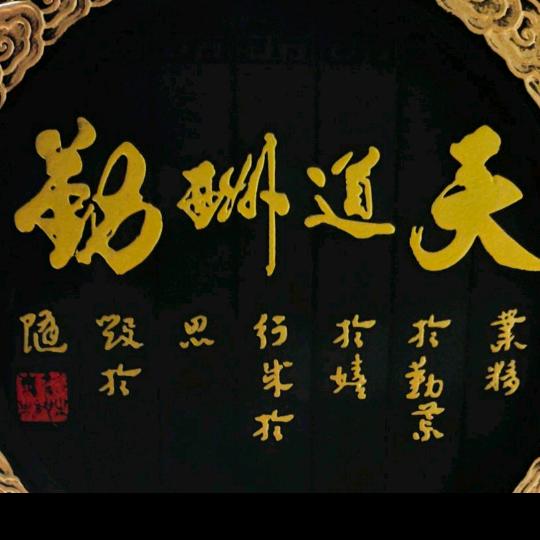 天道酬勤
業精
於勤荒
於嬉
行成於
思
毀於
隨